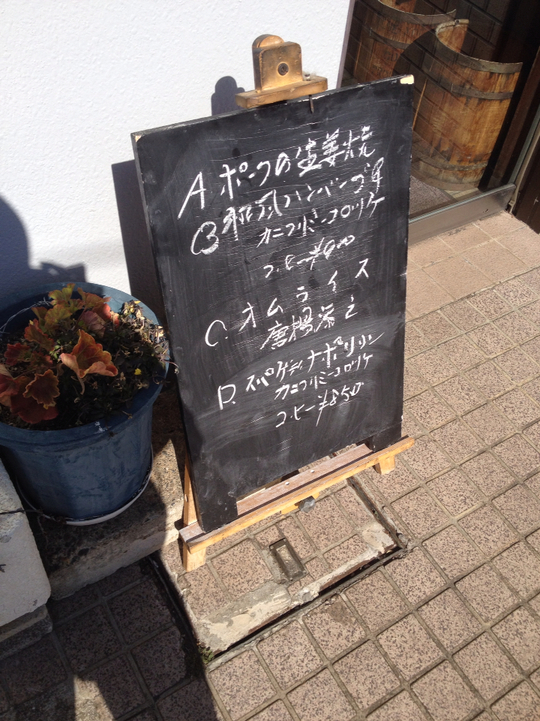 A ポークの生姜焼
B 和風ハンバーグ
カニクリーミーコロッケ
コーヒー ¥900
C. オムライス
唐揚添え
D. スパゲティナポリタン
カニクリーミーコロッケ
コーヒー ¥850